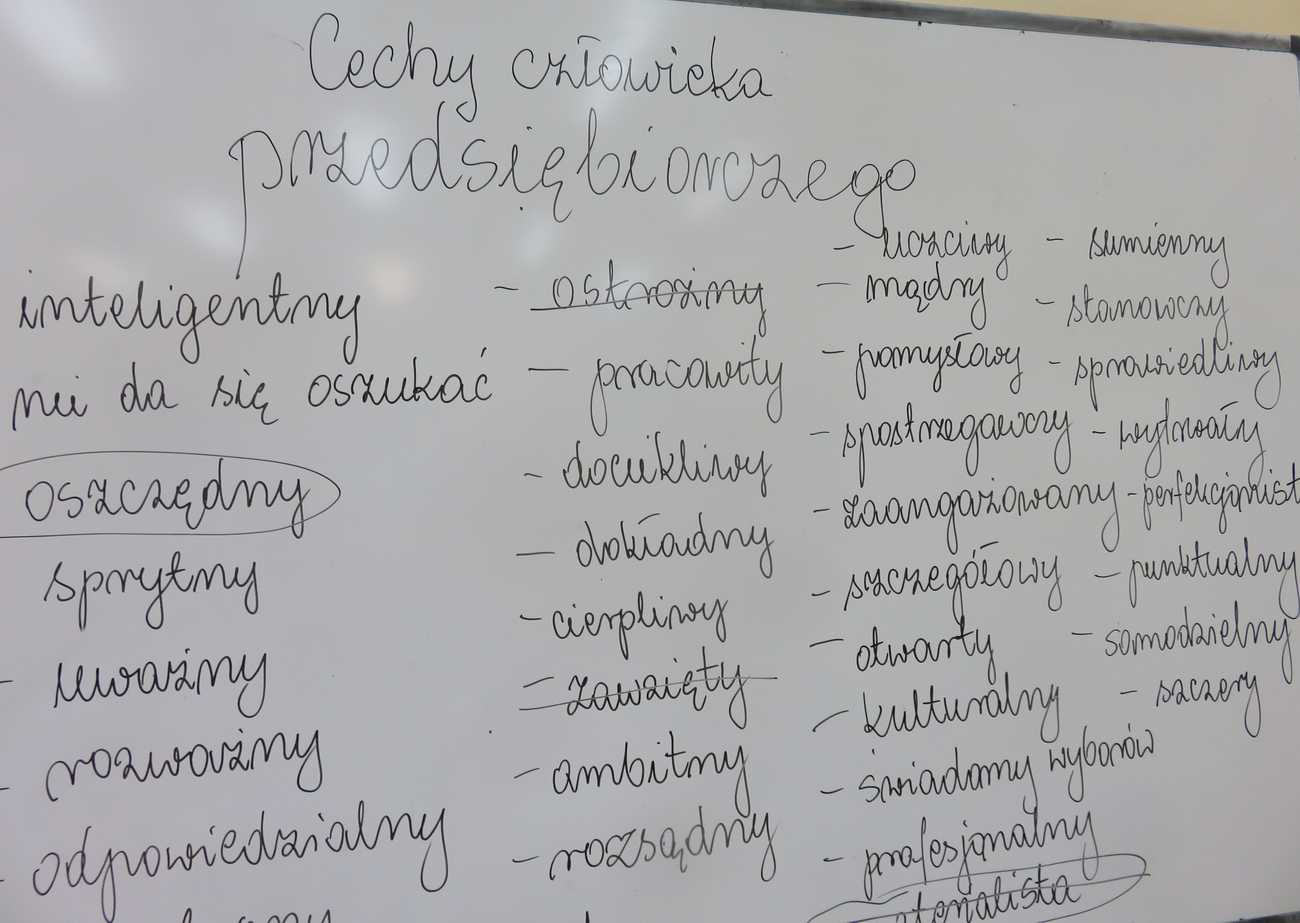 Cechy człowieka
przedsiębiorczego
inteligentny
nie da się oszukać
oszczędny
sprytny
- uważny
- rozważny
- odpowiedzialny
- ostrożny
- pracowity
- dociekliwy
- dokładny
- cierpliwy
- zawzięty
- ambitny
- rozsądny
- uczciwy
- mądry
- pomysłowy
- spostrzegawczy
- zaangażowany
- szczegółowy
- otwarty
- kulturalny
- świadomy wyborów
- profesjonalny
- sumienny
- stanowczy
- sprawiedliwy
- wytrwały
- perfekcjonist
- punktualny
- samodzielny
- szczery